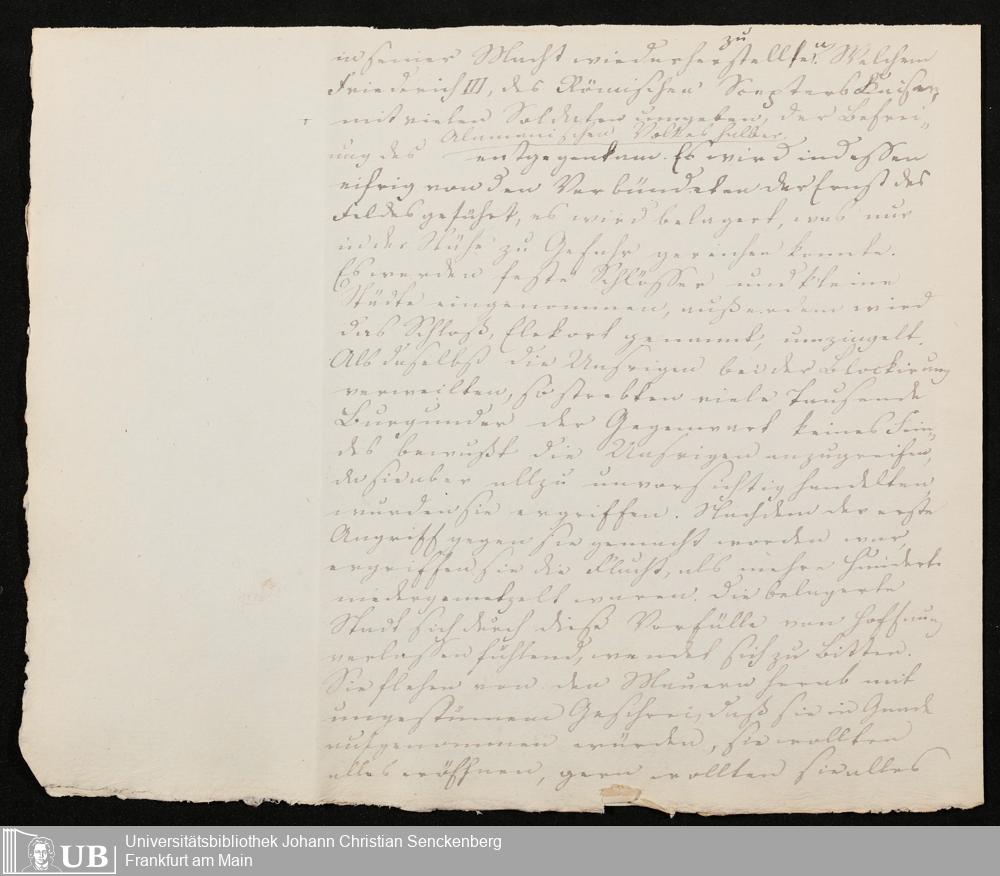 in seiner Macht wiederherstellte. Welchem
zu
Friederich III, des Römischen Scepters Kaiser,
mit vielen Soldaten umgeben, der Befrei-
ung des Alamanischen Volkes halber
entgegenkam. Es wird indessen
eifrig von den Verbündeten der Ernst des
Feldes geführt, es wird belagert, was nur
in der Nähe zu Gefahr gereichen konnte.
Es werden feste Schlösser und kleine
Städte eingenommen, außerdem wird
das Schloß, Elekort genannt, umzingelt.
Als daselbst die Unsrigen bei der Blockirung
verweilten, so strebten viele Tausende
Burgunder der Gegenwart keines Fein-
des bewußt die Unsrigen anzugreifen,
da sie aber allzu unvorsichtig handelten,
wurden sie ergriffen. Nachdem der erste
Angriff gegen sie gemacht worden war,
ergriffen sie die Flucht, als mehre Hundert
niedergemetzelt waren. Die belagerte
Stadt sich durch diese Vorfälle von Hoffnung
verlassen fühlend, wendet sich zu Bitten.
Sie flehen von den Mauern herab mit
ungestümem Geschrei, daß sie in Gnade
aufgenommen würden, sie wollten
alles eröffnen, gern wollten sie alles
UB
Universitätsbibliothek Johann Christian Senckenberg
Frankfurt am Main